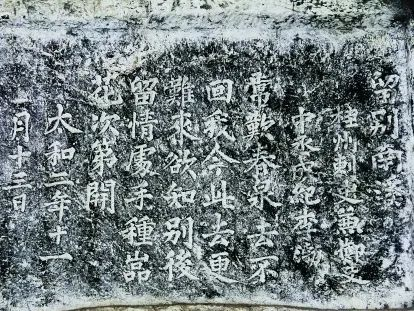 留别南溪
桂州刺史兼御史
中丞成紀李渤
常歎春泉去不
回我今此去更
難來欲知別後
留情處手種嵓
花次第開
大和二年十一
月十三日